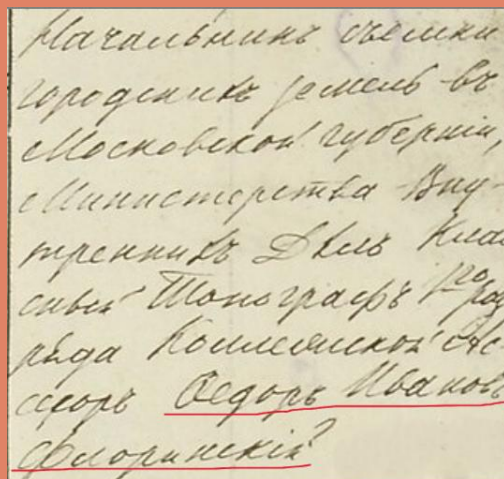 Начальникъ съемки
городскихъ земель въ
Московской губерніи,
Министерства Вну-
треннихъ Дѣлъ Клас
сный Топографъ 1го раз
ряда Коллежской Ас
сесоръ Ѳедоръ Ивановъ
Флоринскій